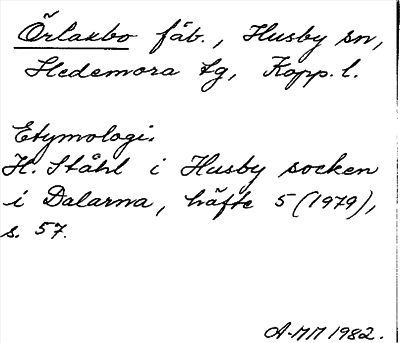 Örlaxbo fäb., Husby sn,
Hedemora tg, Kopp. l.
Etymologi.
H. Ståhl i Husby socken
i Dalarna, häfte 5 (1979),
s. 57.
A-MM 1982.